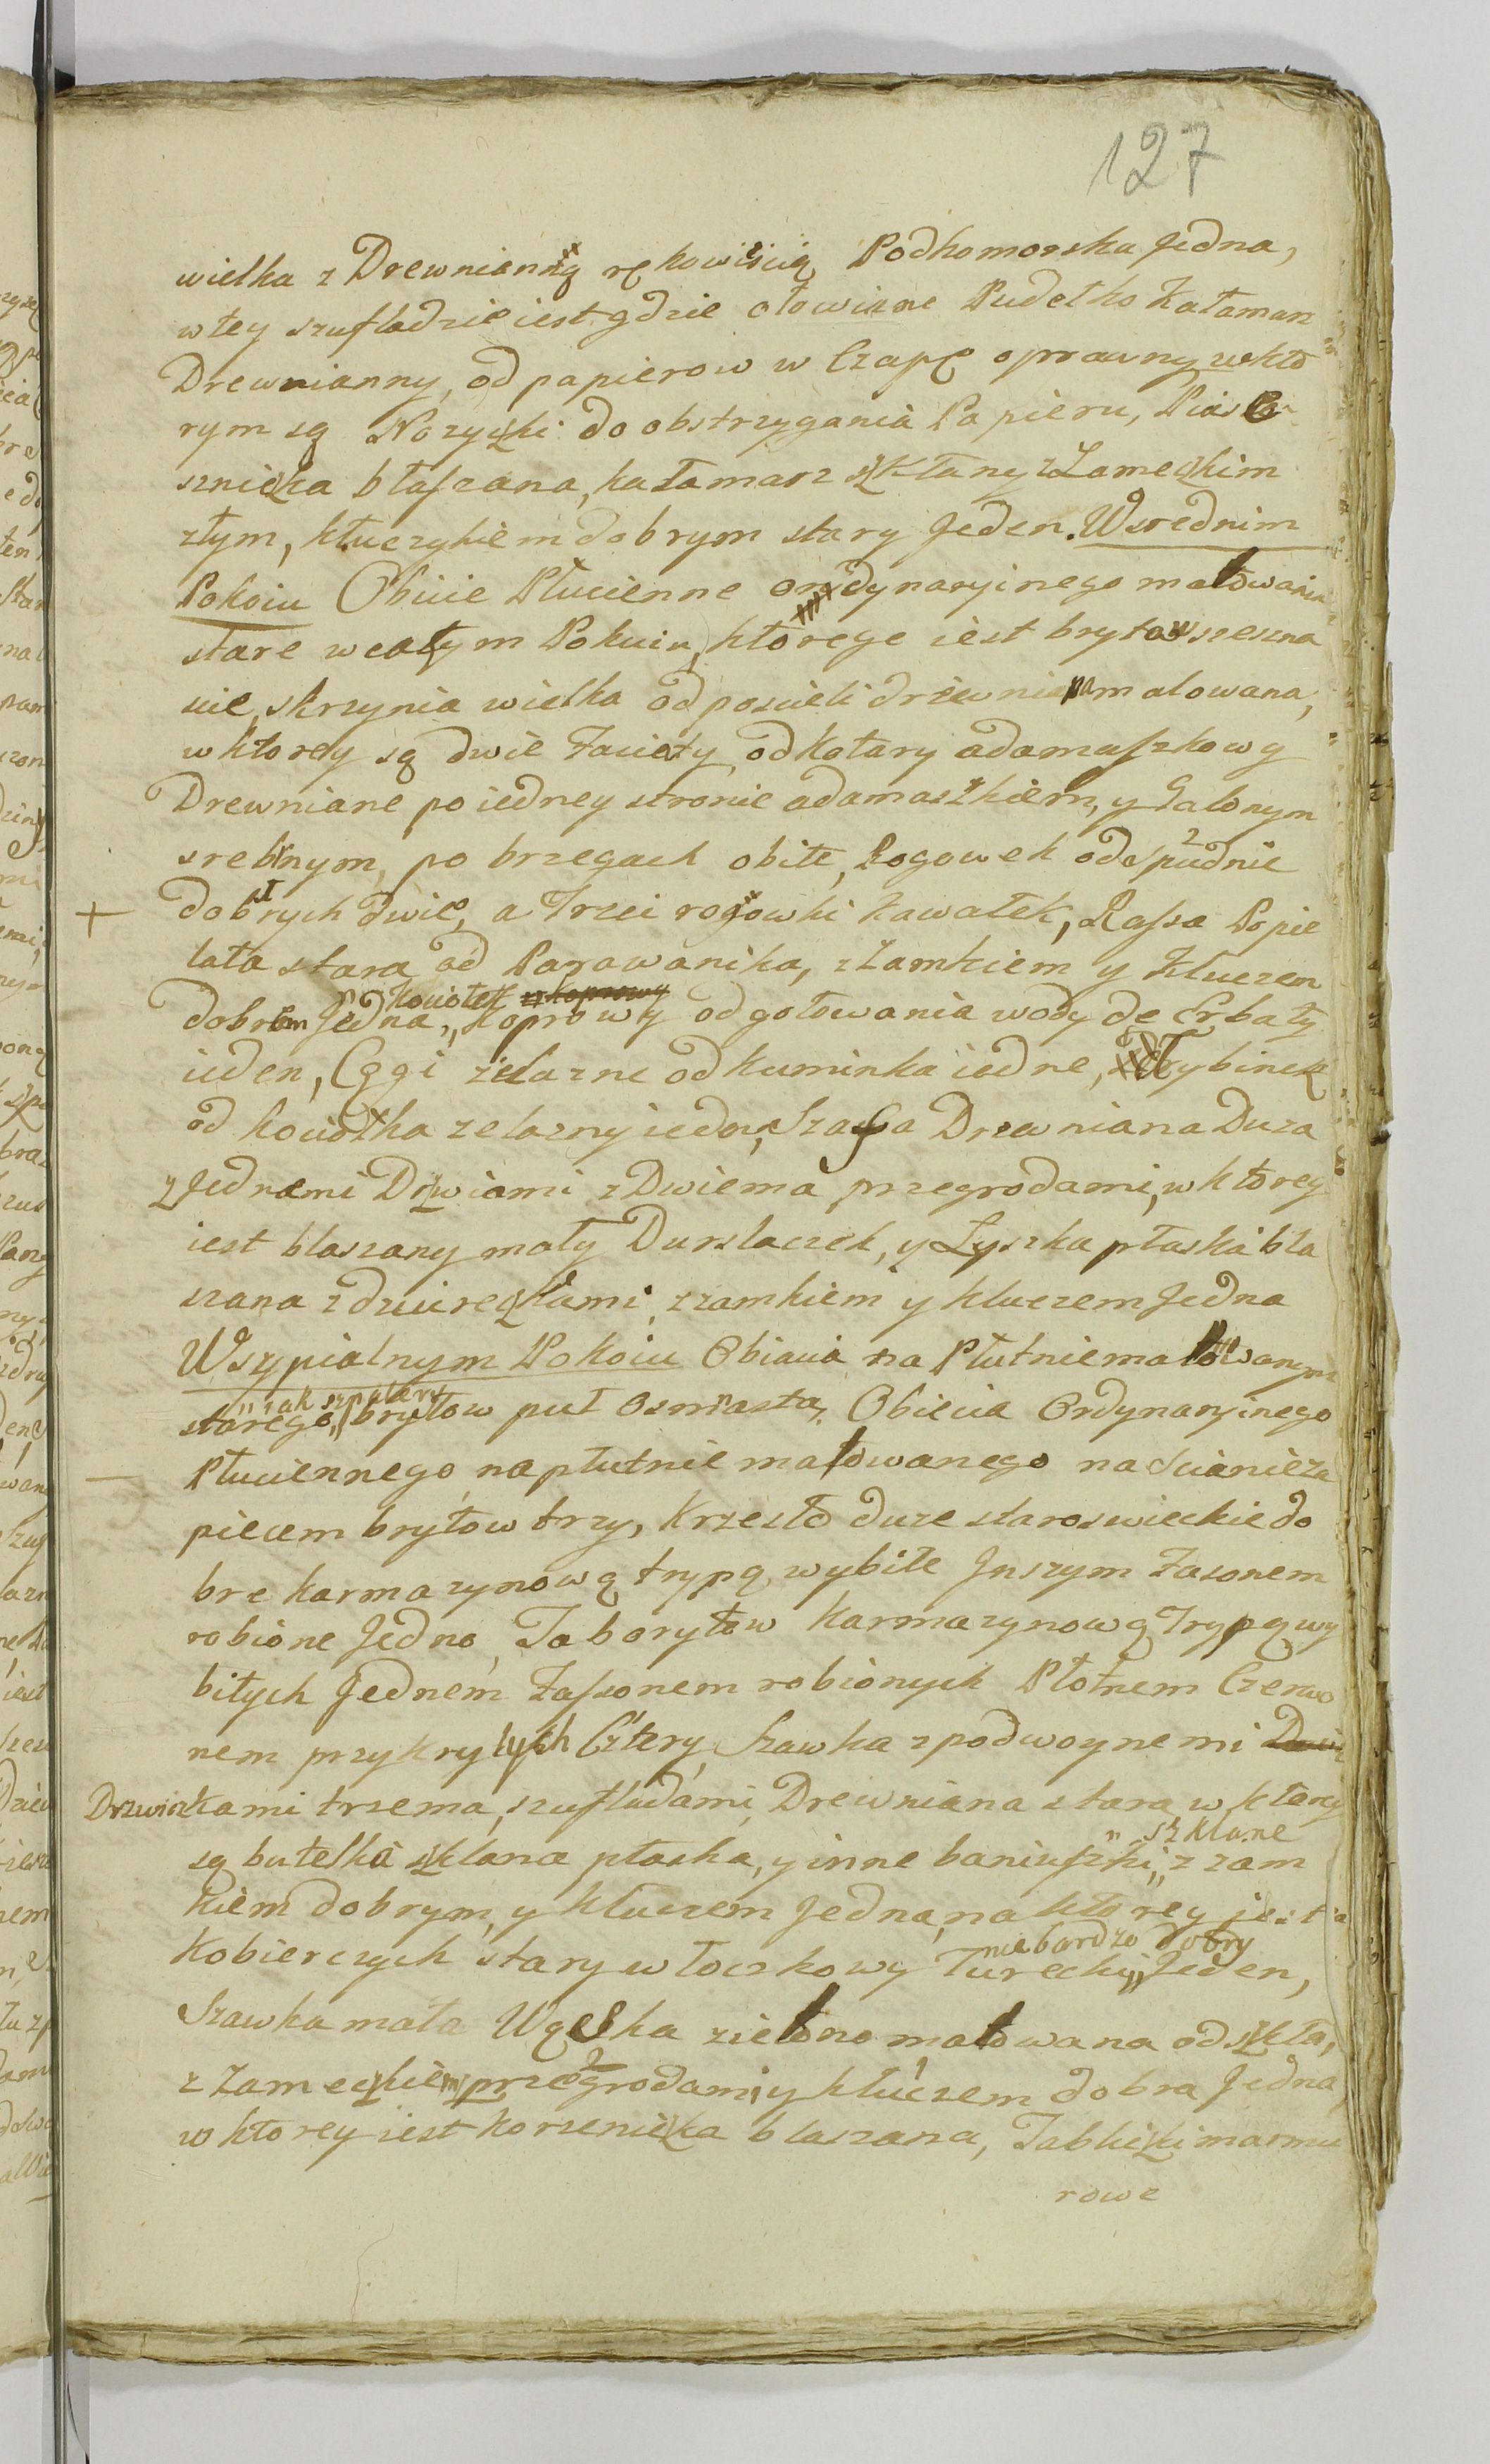 127
wielka z Drewnianną rękowiścią Podkomorska Jedna,
w tey szufladzie iest gdzie ołowiane Pudełko Kałamarz
Drewnianny, od papierow w Czapę oprawny, w kto
rym są Nozyczki do obstrzygania Papieru, Piase
sznicżka błaszana, kałamarz sżkłany z Zameczkim
złym, kłuczykiem dobrym stary Jeden. W srednim
Pokoiu Obicie Płucienne ordynaryinego malowania
stare w całym Pokuiu, ktorege iest brytow szesna
scie, skrzynia wielka od poscieli drzewniana malowana,
w ktorey są dwie Faciaty od Kotary adamaszkowy
Drewniane po iedney stronie adamaszkiem, y Galonym
srebrnym, po brzegach obite, Rogowek od Spudnie
+ dobrych dwie, a Trzei rogowki kawałek, Kassa Popie
lata stara od Parawanika, z Zamkiem y Kluczem
kociołek
dobrem Jedna, Koprowy od gotowania wody de Erbaty
ieden, Cęgi żelazne od kuminka iedne, Trybinek
od kociołka zelazny ieden, Szaffa Drzewniana Duza
z Jednemi Drzwiami z Dwiema przegrodami, w ktorey
iest blaszany mały Durslaczek, y Łyszka płaska bła
szana z dziureczkami, z zamkiem y kluczem Jedna
W szypialnym Pokoiu Obiacia na Płutnie malowanym
" iak szpalery
starego " brytow puł Osmasta, Obiecia Ordynaryinego
— Płuciennego na płutnie małowanego na Scianie za
piecem brytow trzy, Krzesło duze staroswieckie do
bre karmazynową trypą wybite Jnszym Fasonem
robione Jedno, Taborytow Karmazynową Trypą wy
bitych Jednem Fassonem robionych Płotnem Czerwo
nem przykrytych Cztery, Szawka z podwoynemi
Drzwiczkami trzema, szufladami Drewniana stara w ktorey
" szklane
są butelka szklana płaska, y inne baniuszki " z zam
kiem dobrym, y kluczem Jedna, na ktorey jest
niebardzo dobry
Kobierczych stary włoczkowy Turecki " Jeden,
Szawka mała Wąska zielono malowana od szkła,
z Zameczkiem przegrodami y kłuczem dobra Jedna
w ktorey iest korzeniczka blaszana, Tabliczki marmu
rowe